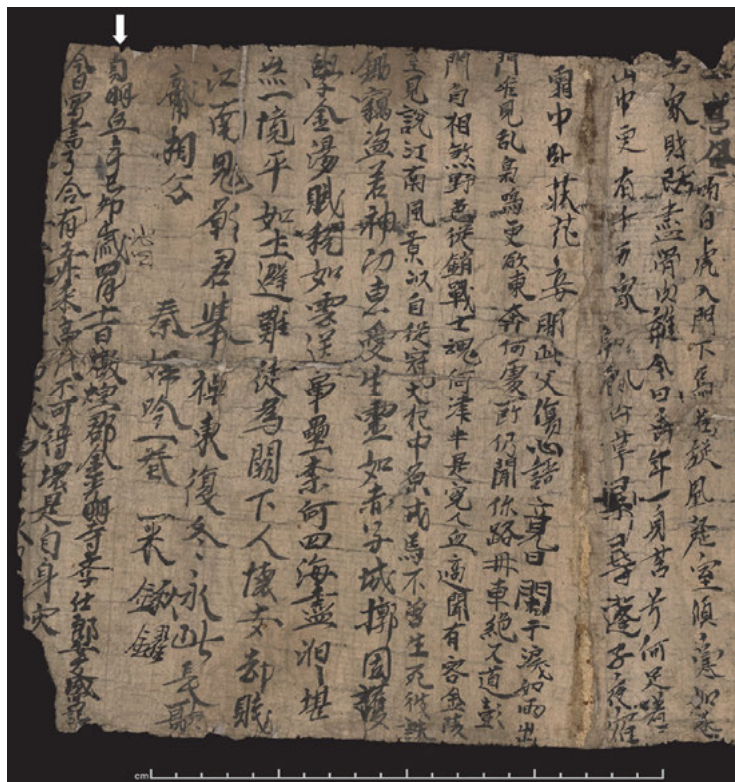 入門下馬若旋風罄室傾囊如卷
土家財既盡骨肉離今日垂年一身苦兮何足嗟
山中更有千万家朝飢山草尋蓬子夜宿
霜中卧荻花妾聞此父傷心語竟日闌干淚如雨出
門唯見乱梟鳴更欲東奔何處所仍聞汴路舟車絶又道彭
門自相煞野色從銷戰士魂河津半是冤人血適聞有客金陵
至見說江南風景以自從寇大犯中原戎馬不曾生死彼誅
鋤竊盜若神功惠愛生靈如赤子城壕固護
學金湯賦稅如雲送軍壘奈何四海盡滔々堪
然一境平如土避難徒為闕下人懷安却賤
江南鬼願君舉棹東復冬永此長歌
獻相公
秦婦吟一卷
貞明伍年己卯歲四月十一日燉煌郡金光明寺學仕郎安友盛寫記
今日寫書了合有五升米高代不可得壞是自身灾
cm